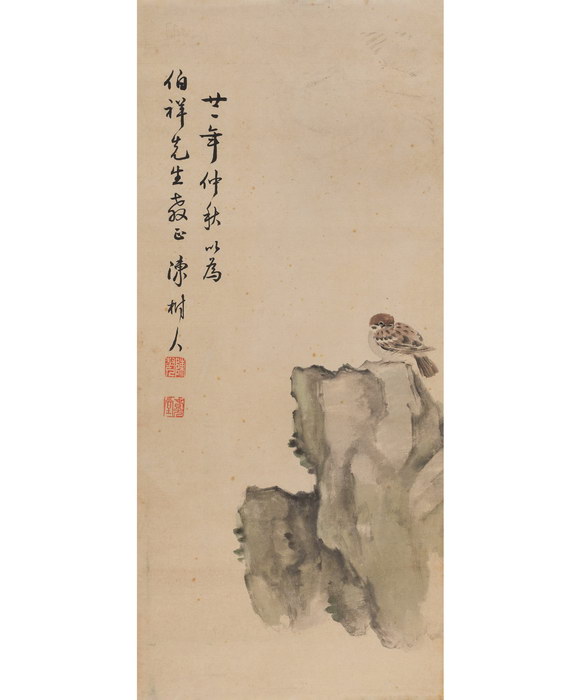 廿一年仲秋以為
伯祥先生教正 陳樹人